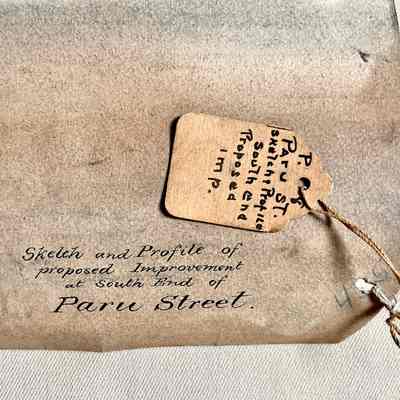 P. 8
Paru St.
Sketch + Profile
South End
Proposed
imp.
Sketch and Profile of
proposed Improvement
at South End of
Paru Street.